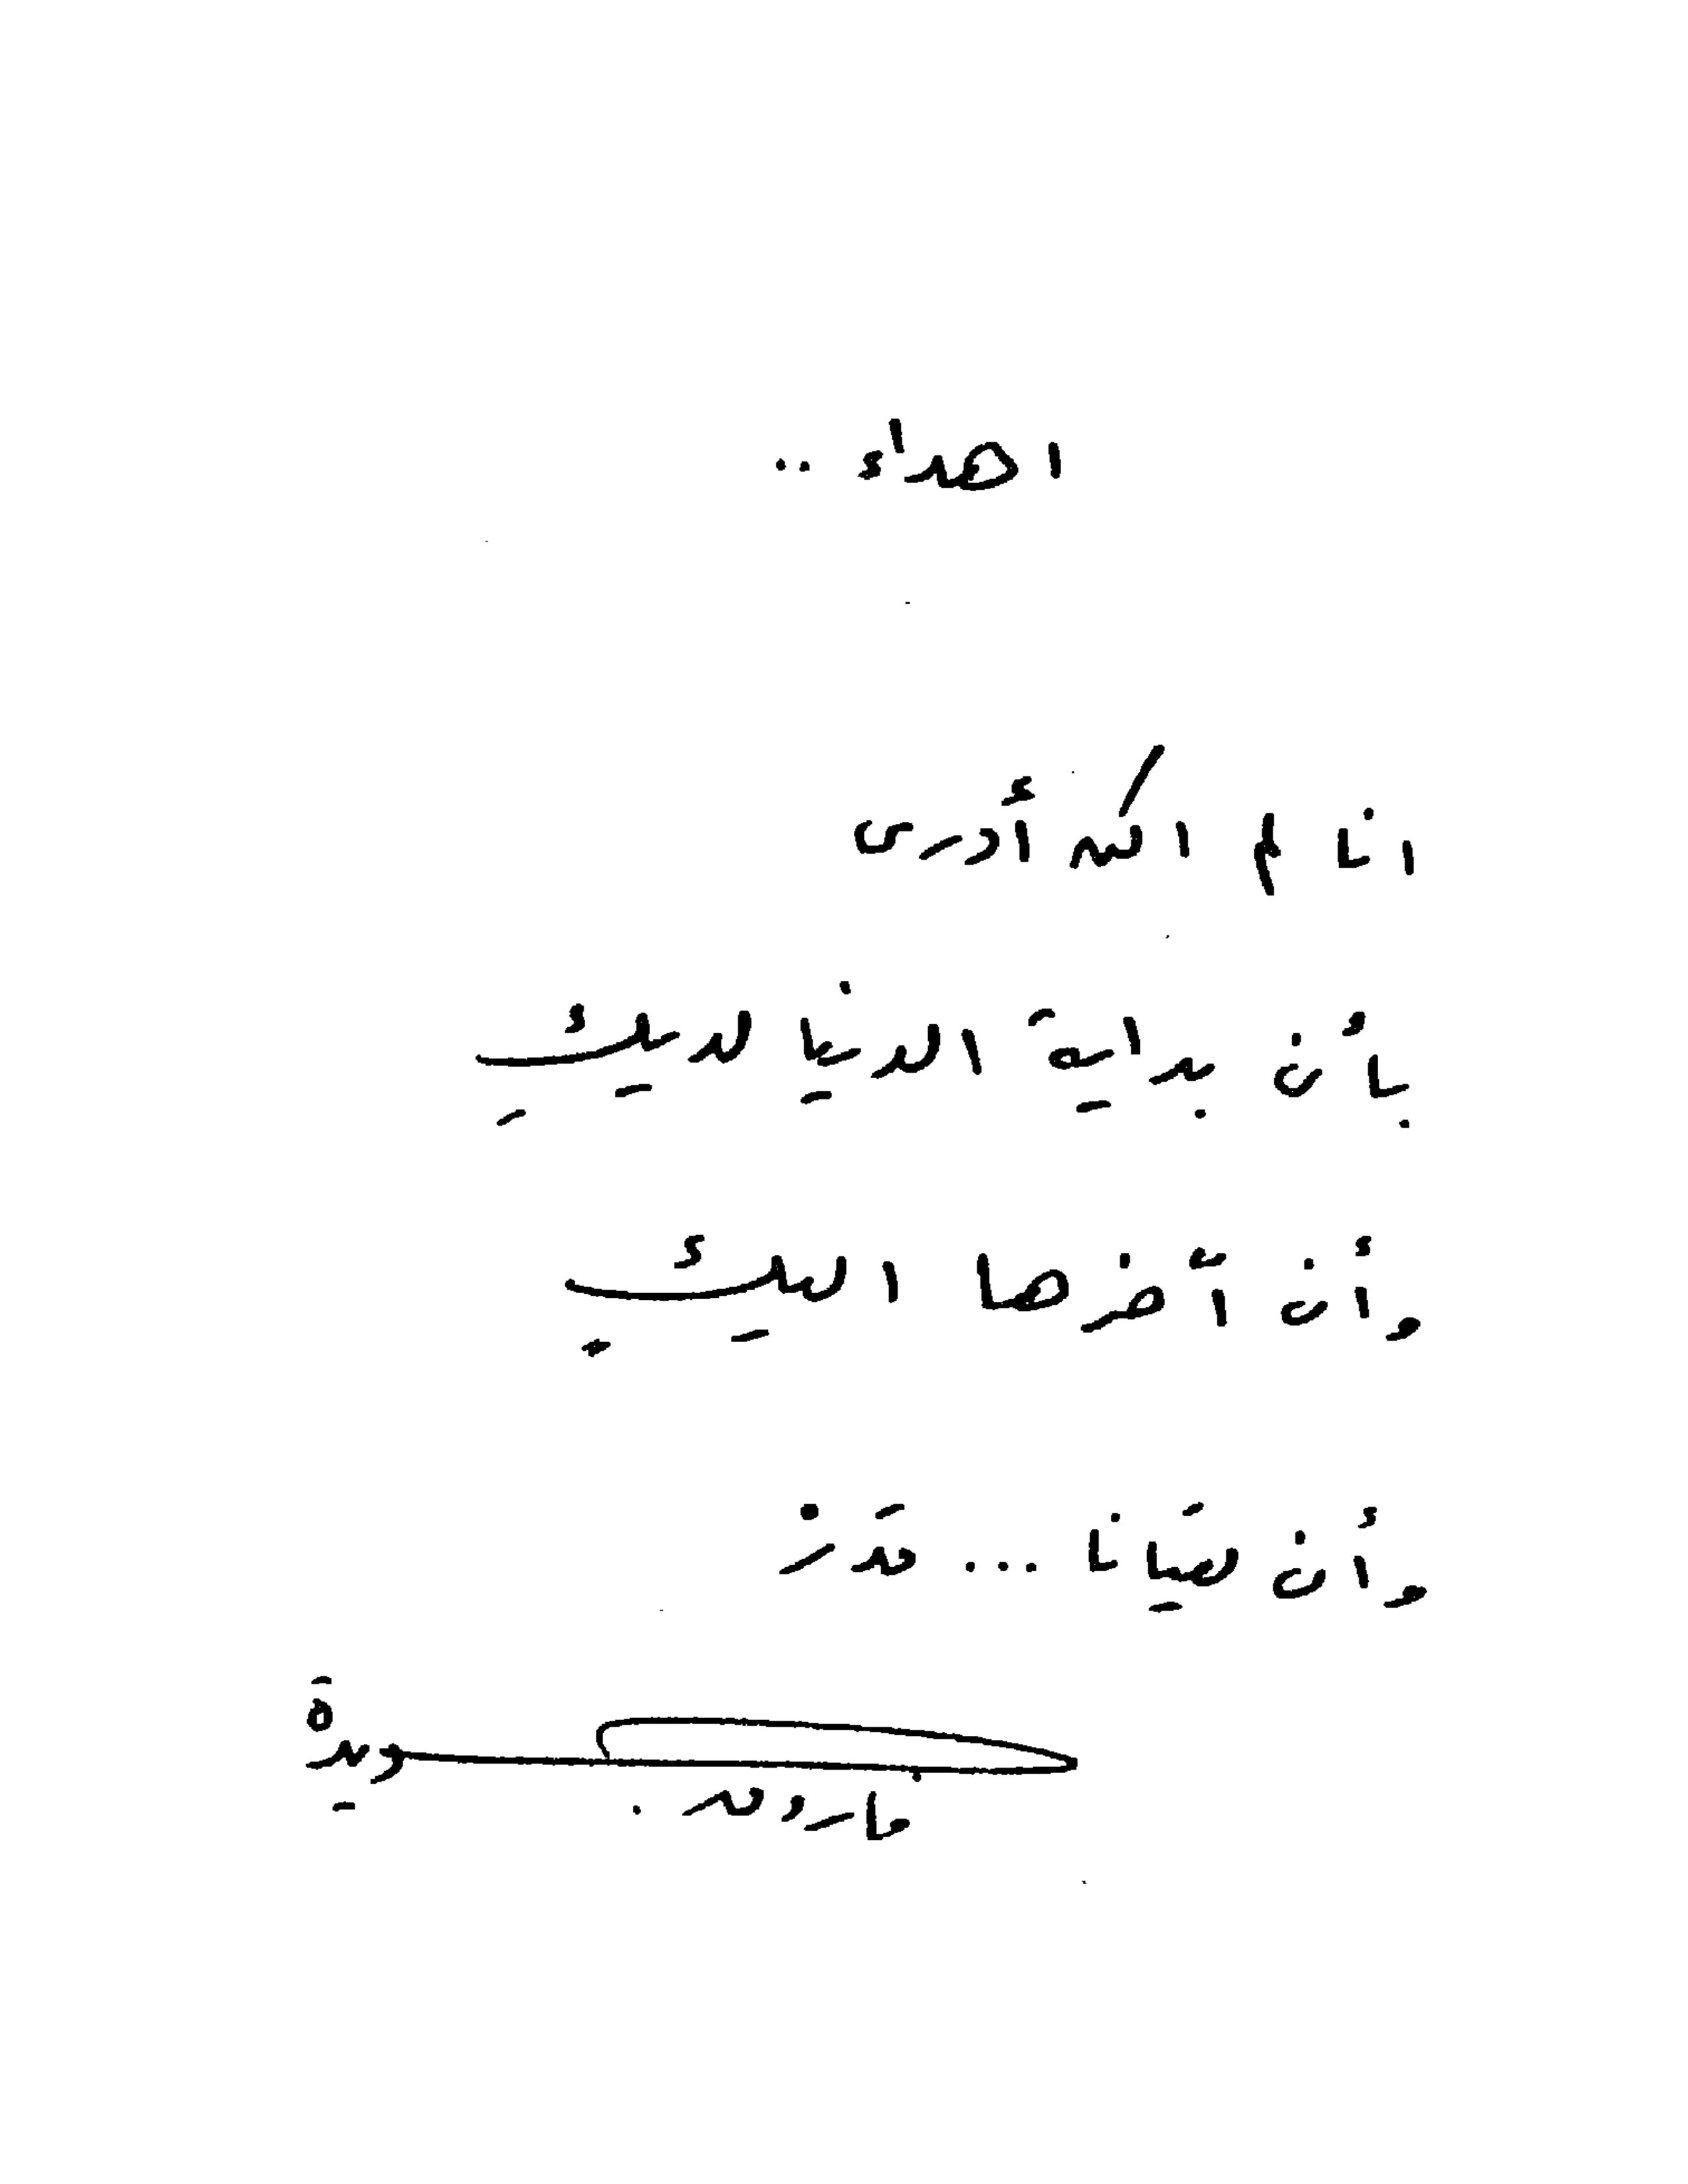 اهداء ..
انا لم اكن أدرى
بأن بداية الدنيا لديكِ
وأن آخرها اليكِ
وأن لقيانا ... قَدَرْ
فاروق جويدة